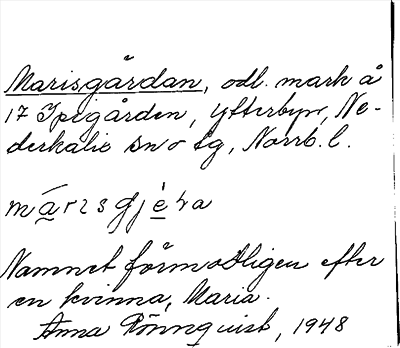 Marisgårdan, odl. mark å
17 Ypegården, Ytterbyn, Ne-
derkalix sn o tg, Norrb. l.
Namnet förmodligen efter
en kvinna, Maria.
Anna Rönnquist, 1948